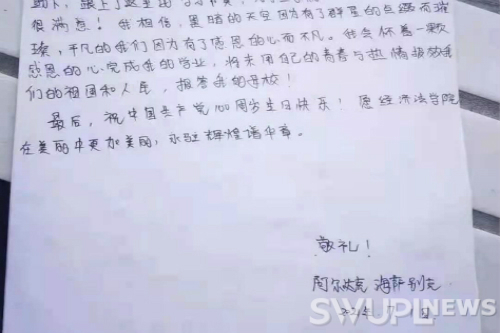 助下，跟上了这里的学习节奏，
很满意！我相信，黑暗的天空因为有了群星的点缀而璀
璨，平凡的我们因为有了感恩的心而不凡。我会怀着一颗
感恩的心完成我的学业，将来用自己的青春与热情报效我
们的祖国和人民，报答我的母校！
最后，祝中国共产党100周岁生日快乐！愿经济法学院
在美丽中更加美丽，永驻辉煌谱华章。
敬礼！
阿尔达克 海萨别克
SWUPINEWS